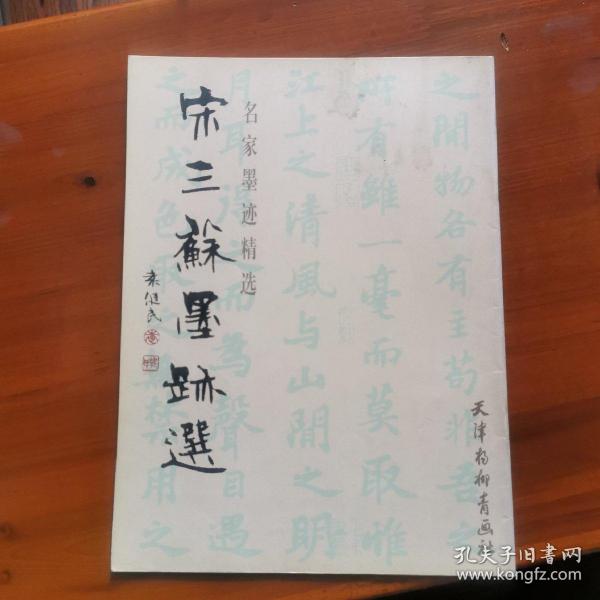 之间物各有主苟非吾之
所有雖一毫而莫取惟
江上之清風与山間之明
月耳得之而為聲目遇
之而成色取之無禁用之
名家墨迹精选
宋三蘇墨跡選
天津杨柳青画社
孔夫子旧书网
www.kongfz.com